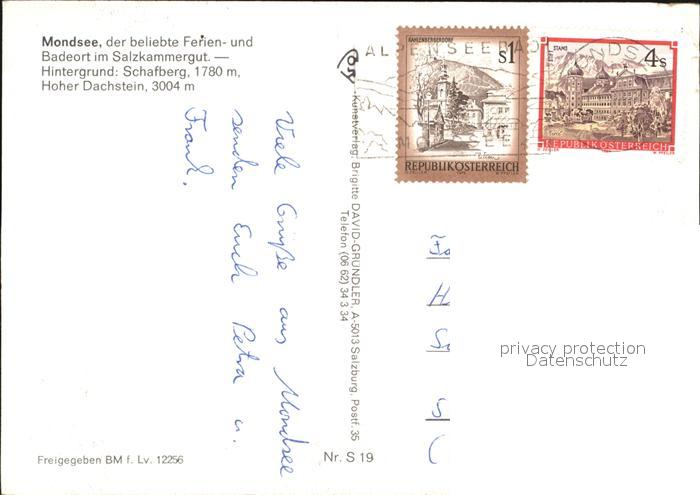 Mondsee, der beliebte Ferien- und
Badeort im Salzkammergut. —
Hintergrund: Schafberg, 1780 m,
Hoher Dachstein, 3004 m
Viele Grüße aus Mondsee
senden Euch Petra u.
Frank.
Freigegeben BM f. Lv. 12256
Kunstverlag: Brigitte DAVID-GRÜNDLER, A-5013 Salzburg, Postf. 35
Telefon (06 62) 34 3 34
Nr. S 19
ALPENSEEBAD
MONDSEE
KAHLENBERGERDORF
S1
REPUBLIK ÖSTERREICH
STIFT STAMS
4 S
REPUBLIK ÖSTERREICH
privacy protection
Datenschutz